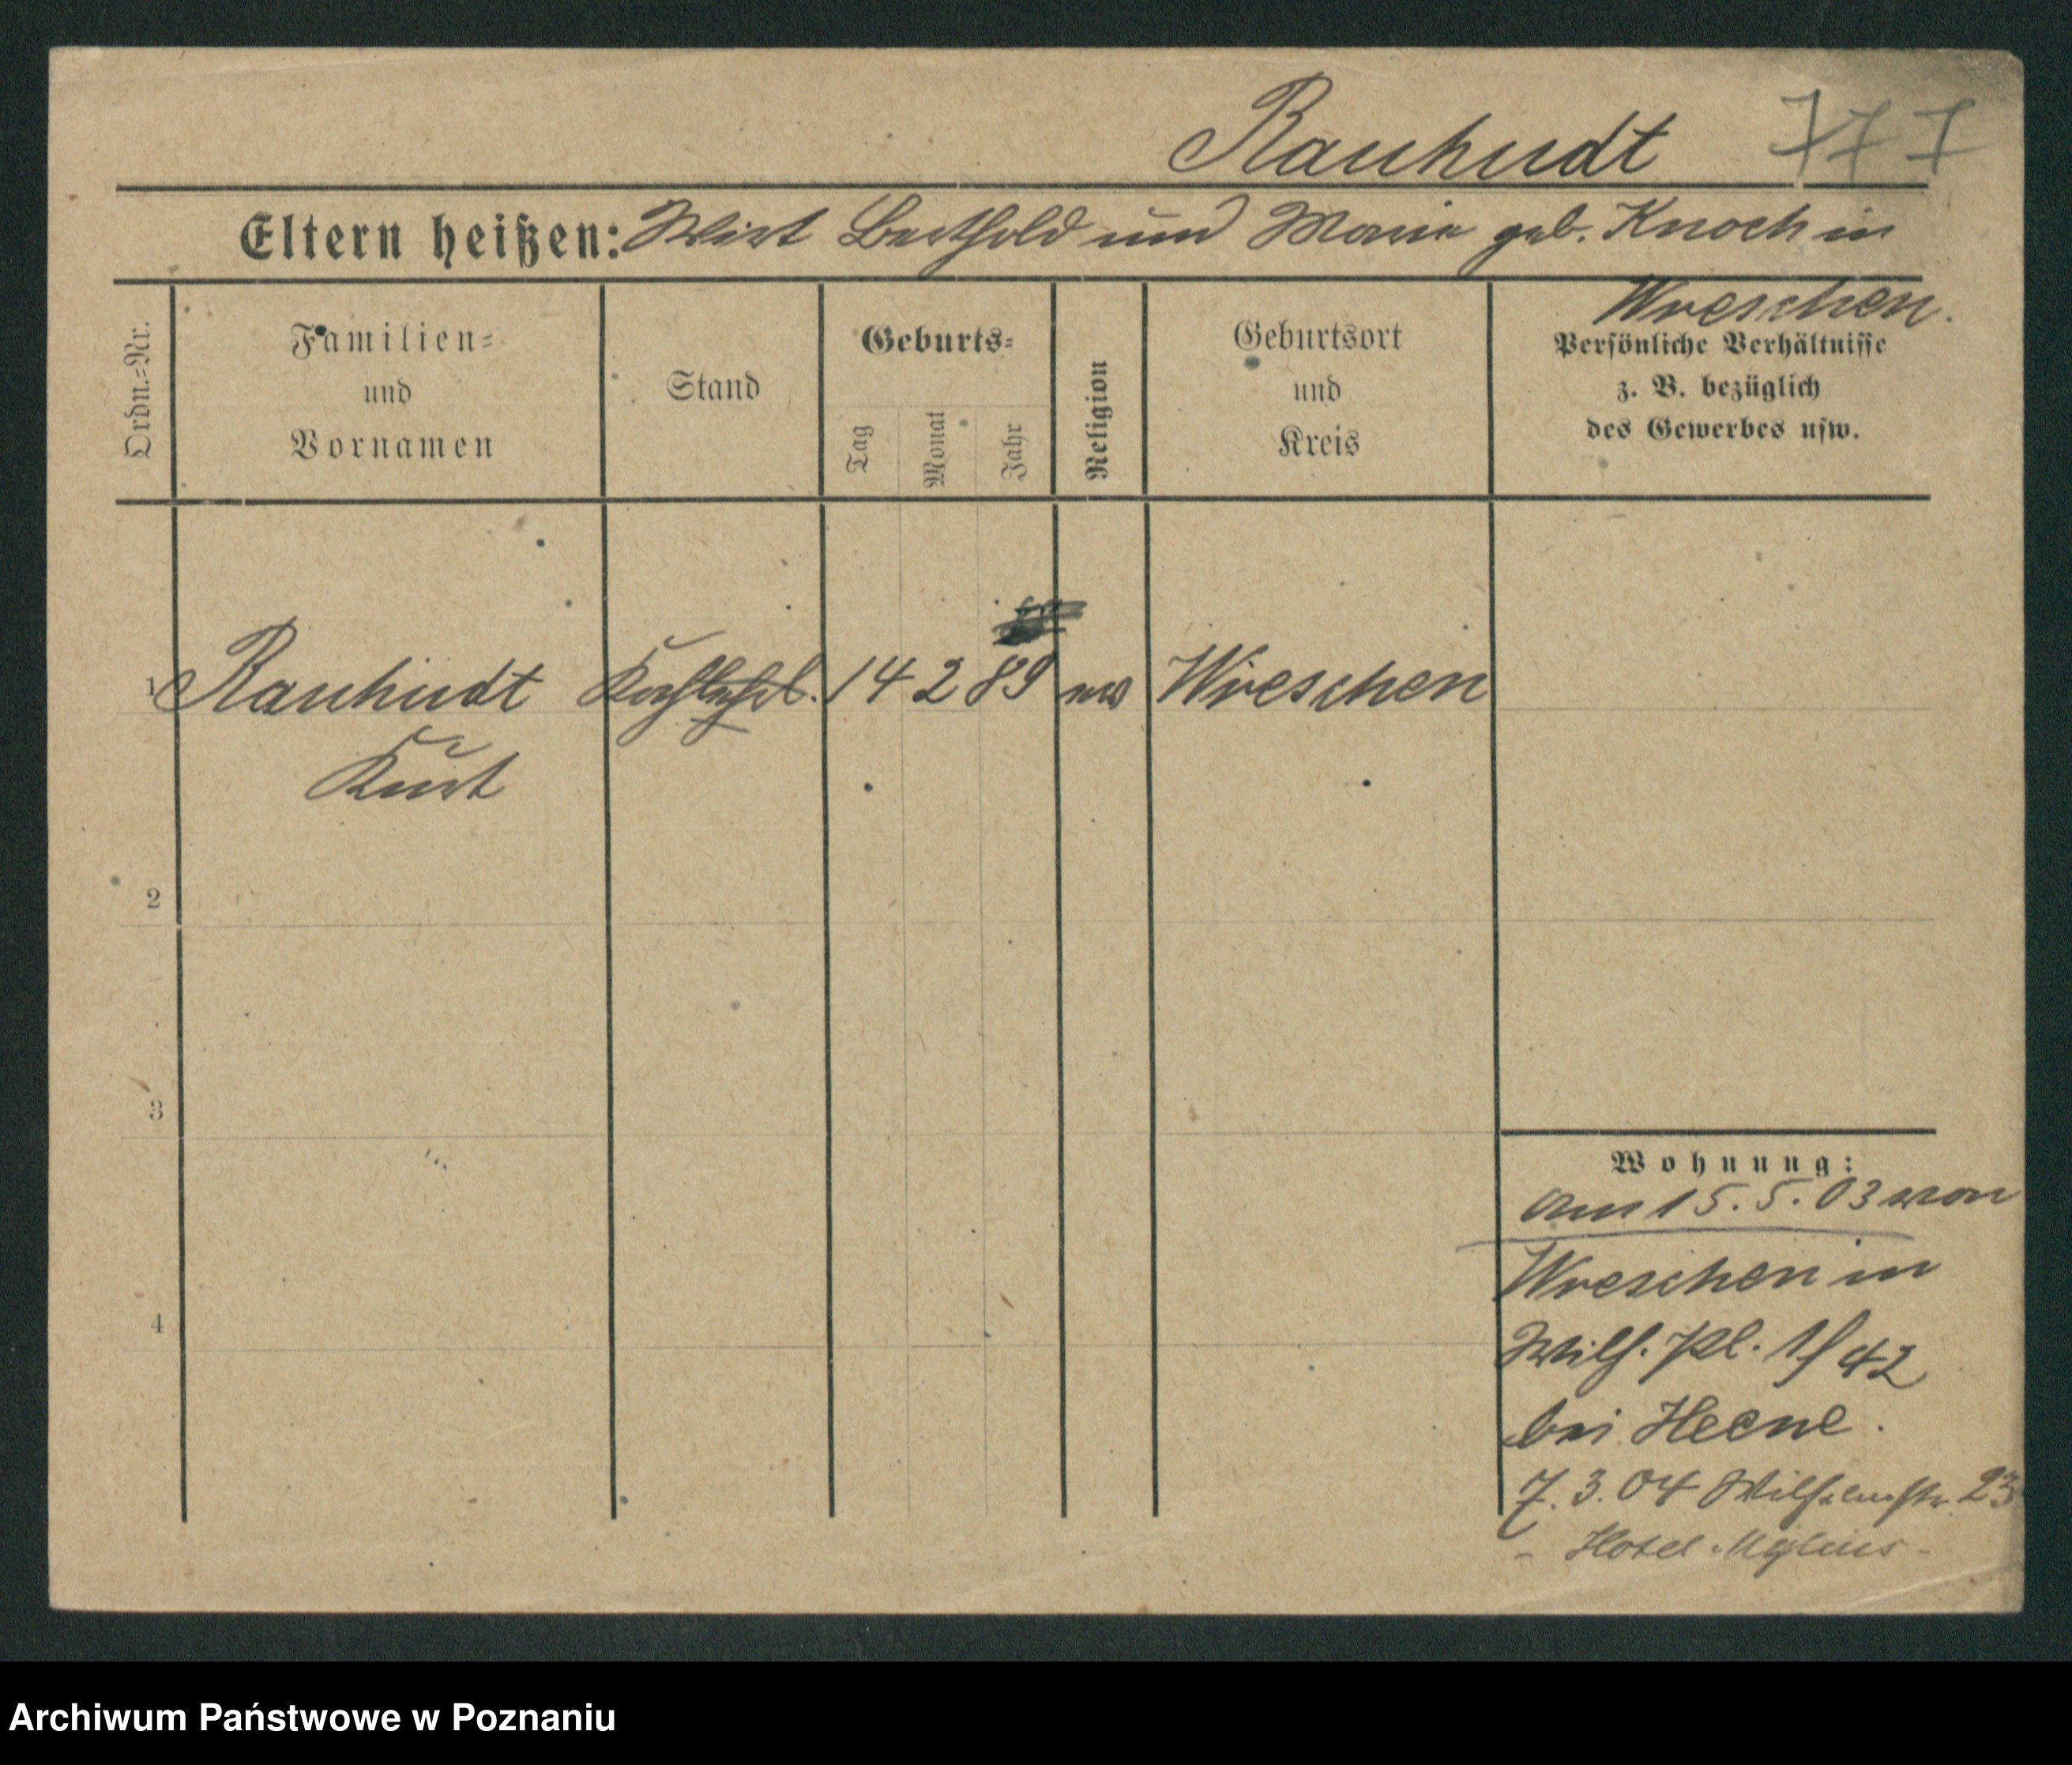 Rauhudt 777
Eltern heißen: Wirt Berthold und Marie geb. Knoch in
Wreschen.
Ordn.=Nr.
Familien=
und
Vornamen
Stand
Geburts=
Tag
Monat
Jahr
Religion
Geburtsort
und
Kreis
Persönliche Verhältnisse
z. B. bezüglich
des Gewerbes usw.
1 Rauhudt Kochlehrl. 14 2 89 ev Wreschen
Kurt
2
3
4
Wohnung:
am 15. 5. 03 von
Wreschen in
Wilh. Pl. 1/42
bei Heene.
7. 3. 04 Wilhelmstr. 23
- Hotel Mylius -
Archiwum Państwowe w Poznaniu